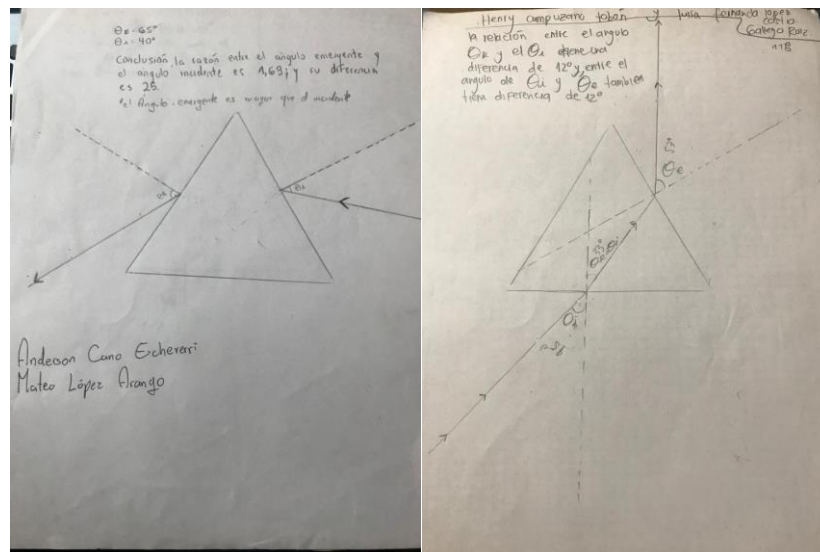 θE = 65°
θi = 40°
Conclusión, la razón entre el angulo emergente y
el angulo incidente es 1,63; y su diferencia
es 25.
el Angulo emergente es mayor que el incidente
Anderson Cano Echeverri
Mateo López Arango
Henry campuzano tobón y Julia fernanda lopez
Gallego Ruiz
la relación entre el angulo
θR y el θi tiene una
diferencia de 12° y entre el
angulo de θi y θe tambien
tiene diferencia de 12°
53°
θe
θi